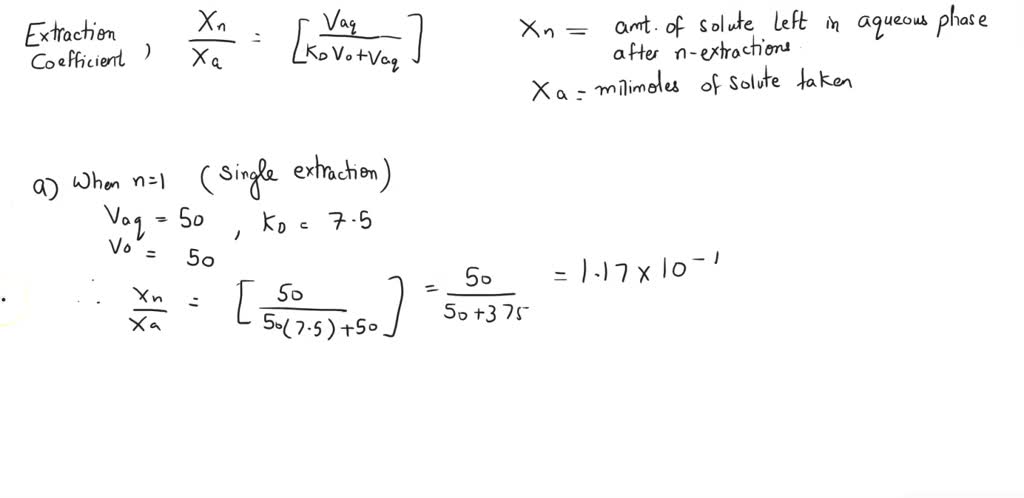 Extraction Coefficient, Xn/Xa = [Vaq/(KD Vo + Vaq)]
Xn = amt. of solute left in aqueous phase
after n-extractions.
Xa = milimoles of solute taken
a) When n=1 (single extraction)
Vaq = 50, KD = 7.5
Vo = 50
∴ Xn/Xa = [50/(50(7.5)+50)] = 50/(50+375) = 1.17 x 10^-1